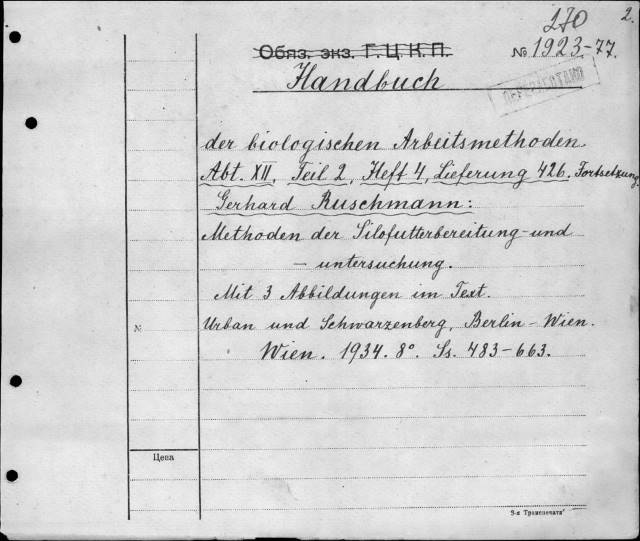 270 2.
Обяз. экз. Г.Ц.К.П. № 1923-77.
Handbuch
ПЕРЕРАБОТАНО
der biologischen Arbeitsmethoden
Abt. XII, Teil 2, Heft 4, Lieferung 426. Fortsetzung
Gerhard Ruschmann:
Methoden der Silofutterbereitung-und
- untersuchung.
Mit 3 Abbildungen im Text.
№ Urban und Schwarzenberg, Berlin - Wien.
Wien. 1934. 8°. Ss. 483-663.
Цена
3-я Транспечать